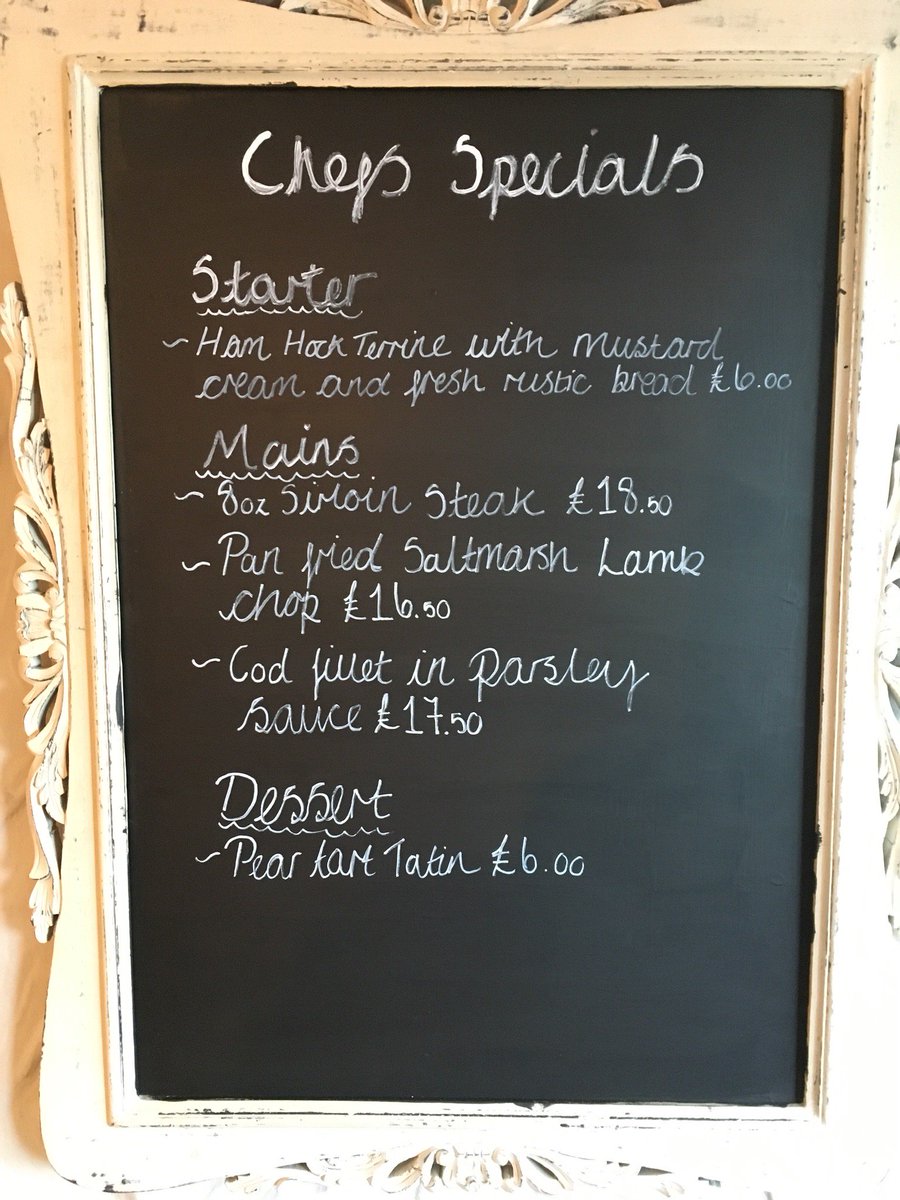 Chefs Specials
Starter
~ Ham Hock Terrine with mustard
cream and fresh rustic bread £6.00
Mains
~ 8oz Sirloin Steak £18.50
~ Pan fried Saltmarsh Lamb
chop £16.50
~ Cod fillet in parsley
sauce £17.50
Dessert
~ Pear tart Tatin £6.00